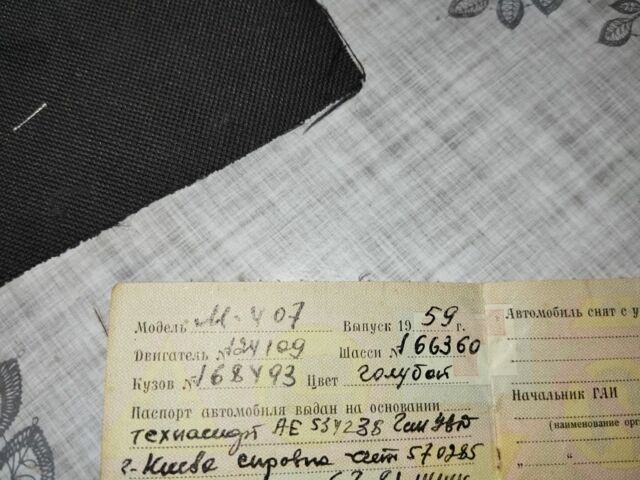 Модель М-407 Выпуск 1959 г.
Двигатель № 124109 Шасси № 166360
Кузов № 168493 Цвет голубой
Паспорт автомобиля выдан на основании
техпаспорт АЕ 534238 Гаи УВД
г. Киева справка-счет 570285
Автомобиль снят с у
Начальник ГАИ
(наименование орг
„ “